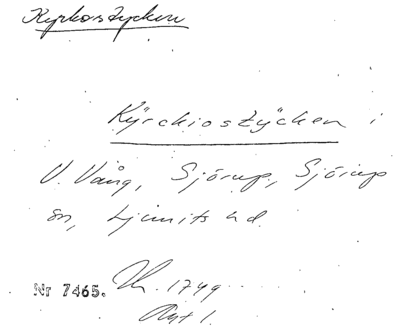 Kyrkostycken
Kÿrckiostÿcken i
V. Vång, Sjörup, Sjörup
sn, Ljunits hd.
Nr 7465. 1749
Akt 1.